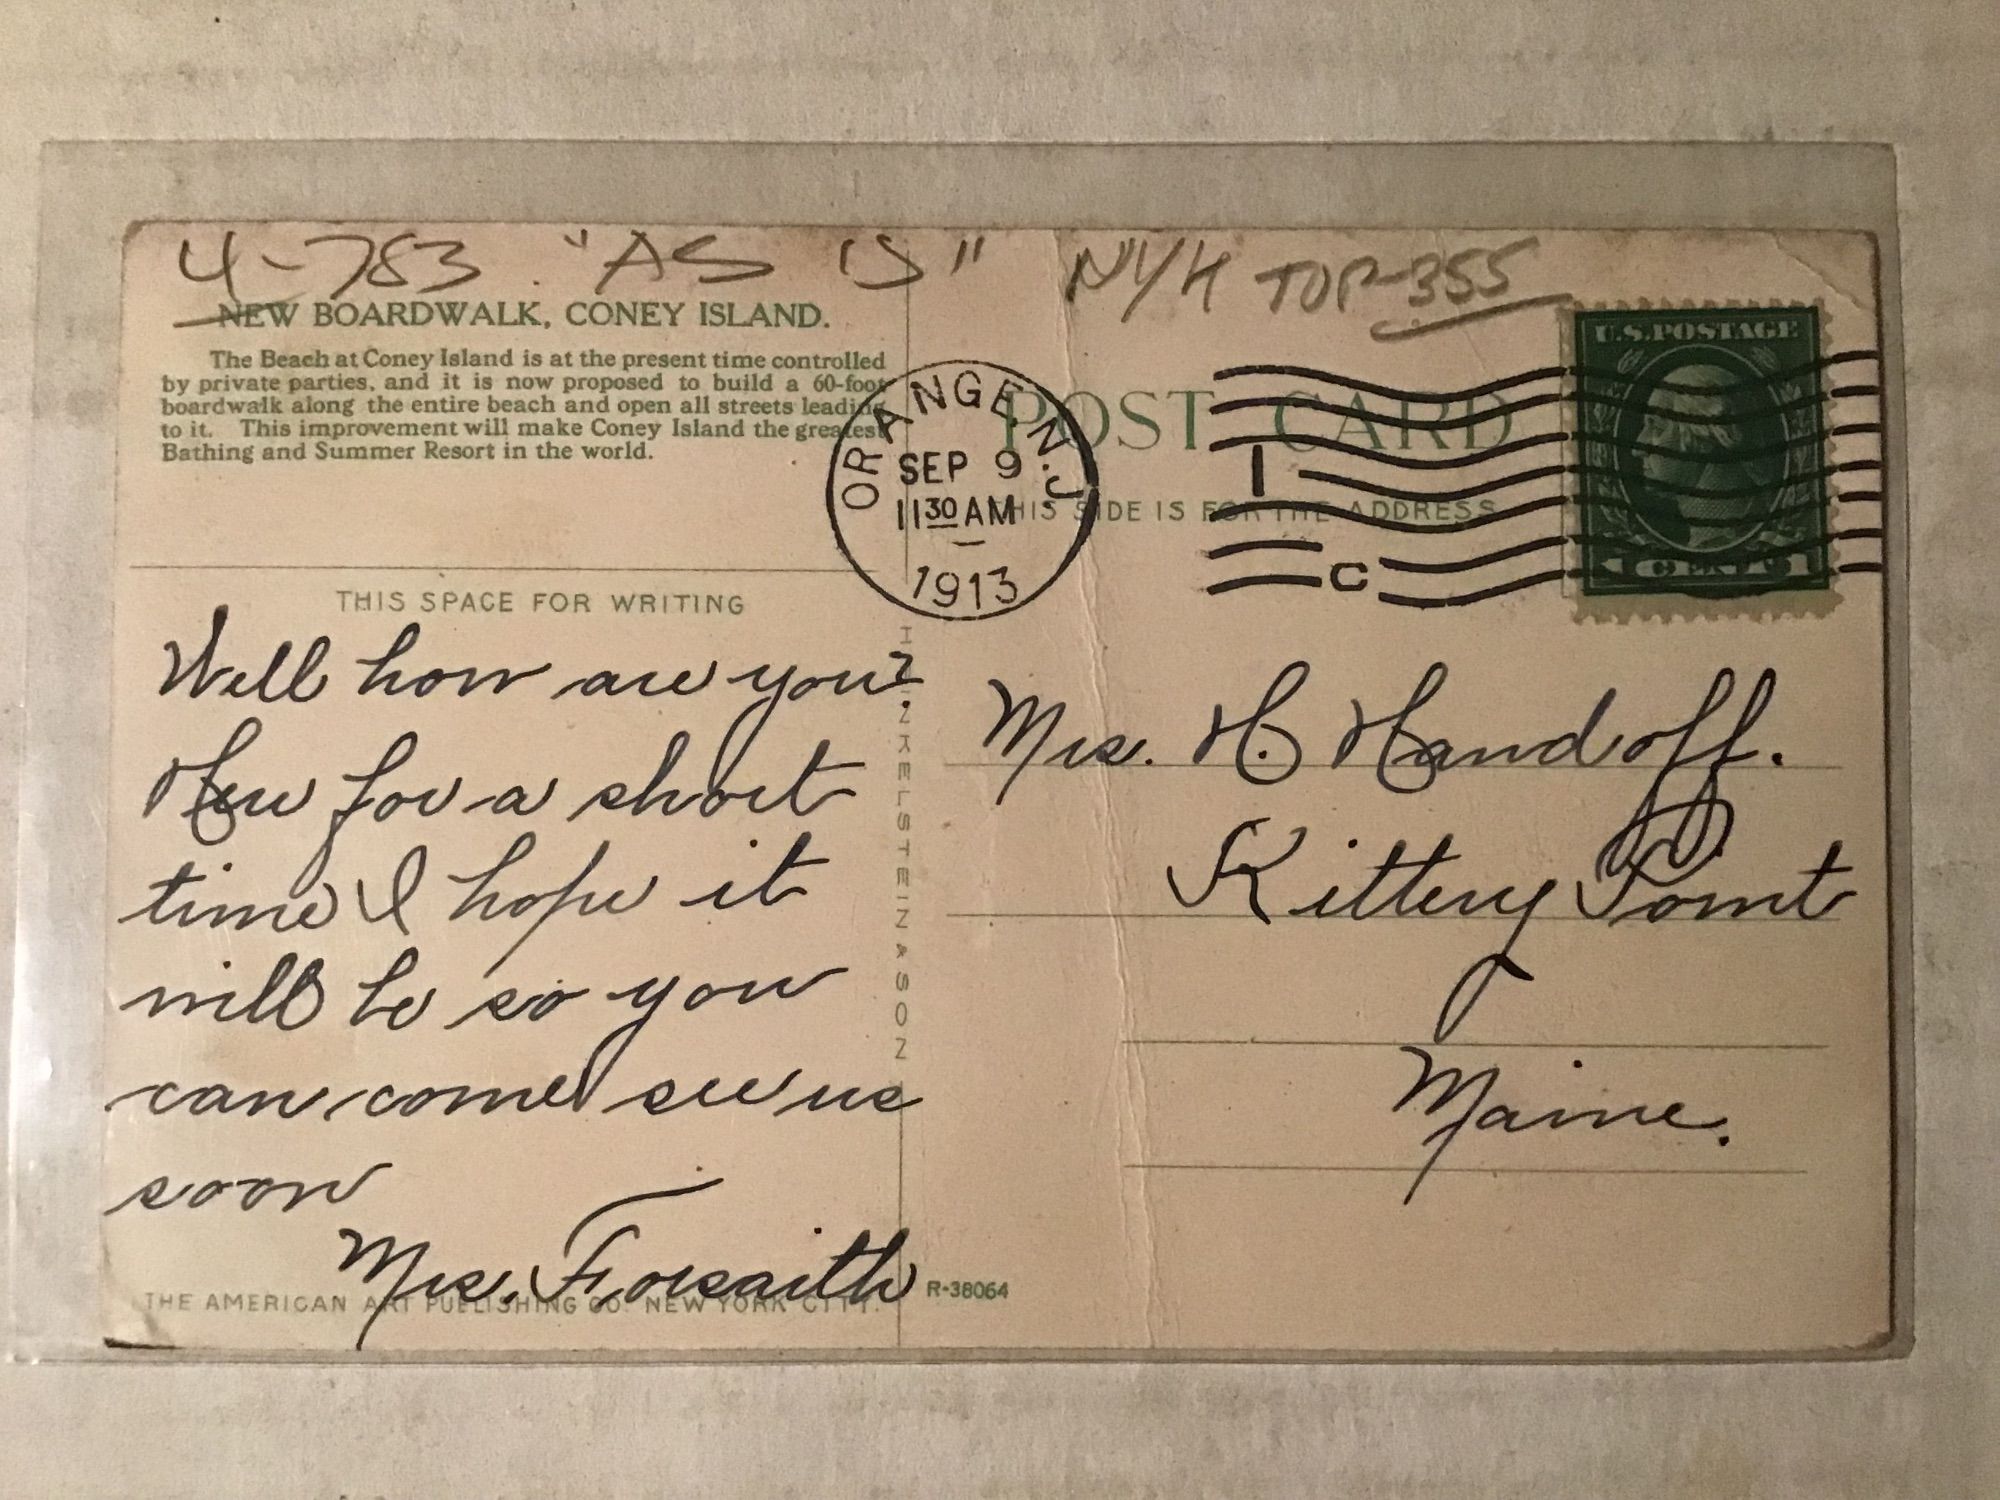 4-783 "AS IS" NY/H TOP-355
NEW BOARDWALK, CONEY ISLAND.
The Beach at Coney Island is at the present time controlled
by private parties, and it is now proposed to build a 60-foot
boardwalk along the entire beach and open all streets leading
to it. This improvement will make Coney Island the greatest
Bathing and Summer Resort in the world.
THIS SPACE FOR WRITING
Well how are you?
Here for a short
time I hope it
will be so you
can come see us
soon
Mrs. Forsaith
THE AMERICAN ART PUBLISHING CO. NEW YORK CITY.
R-38064
H. FINKELSTEIN & SON
ORANGE, N.J.
SEP 9
11 30 AM
1913
POST CARD
THIS SIDE IS FOR THE ADDRESS
1
C
U.S. POSTAGE
1 CENT 1
Mrs. H. Handoff.
Kittery Point
Maine.